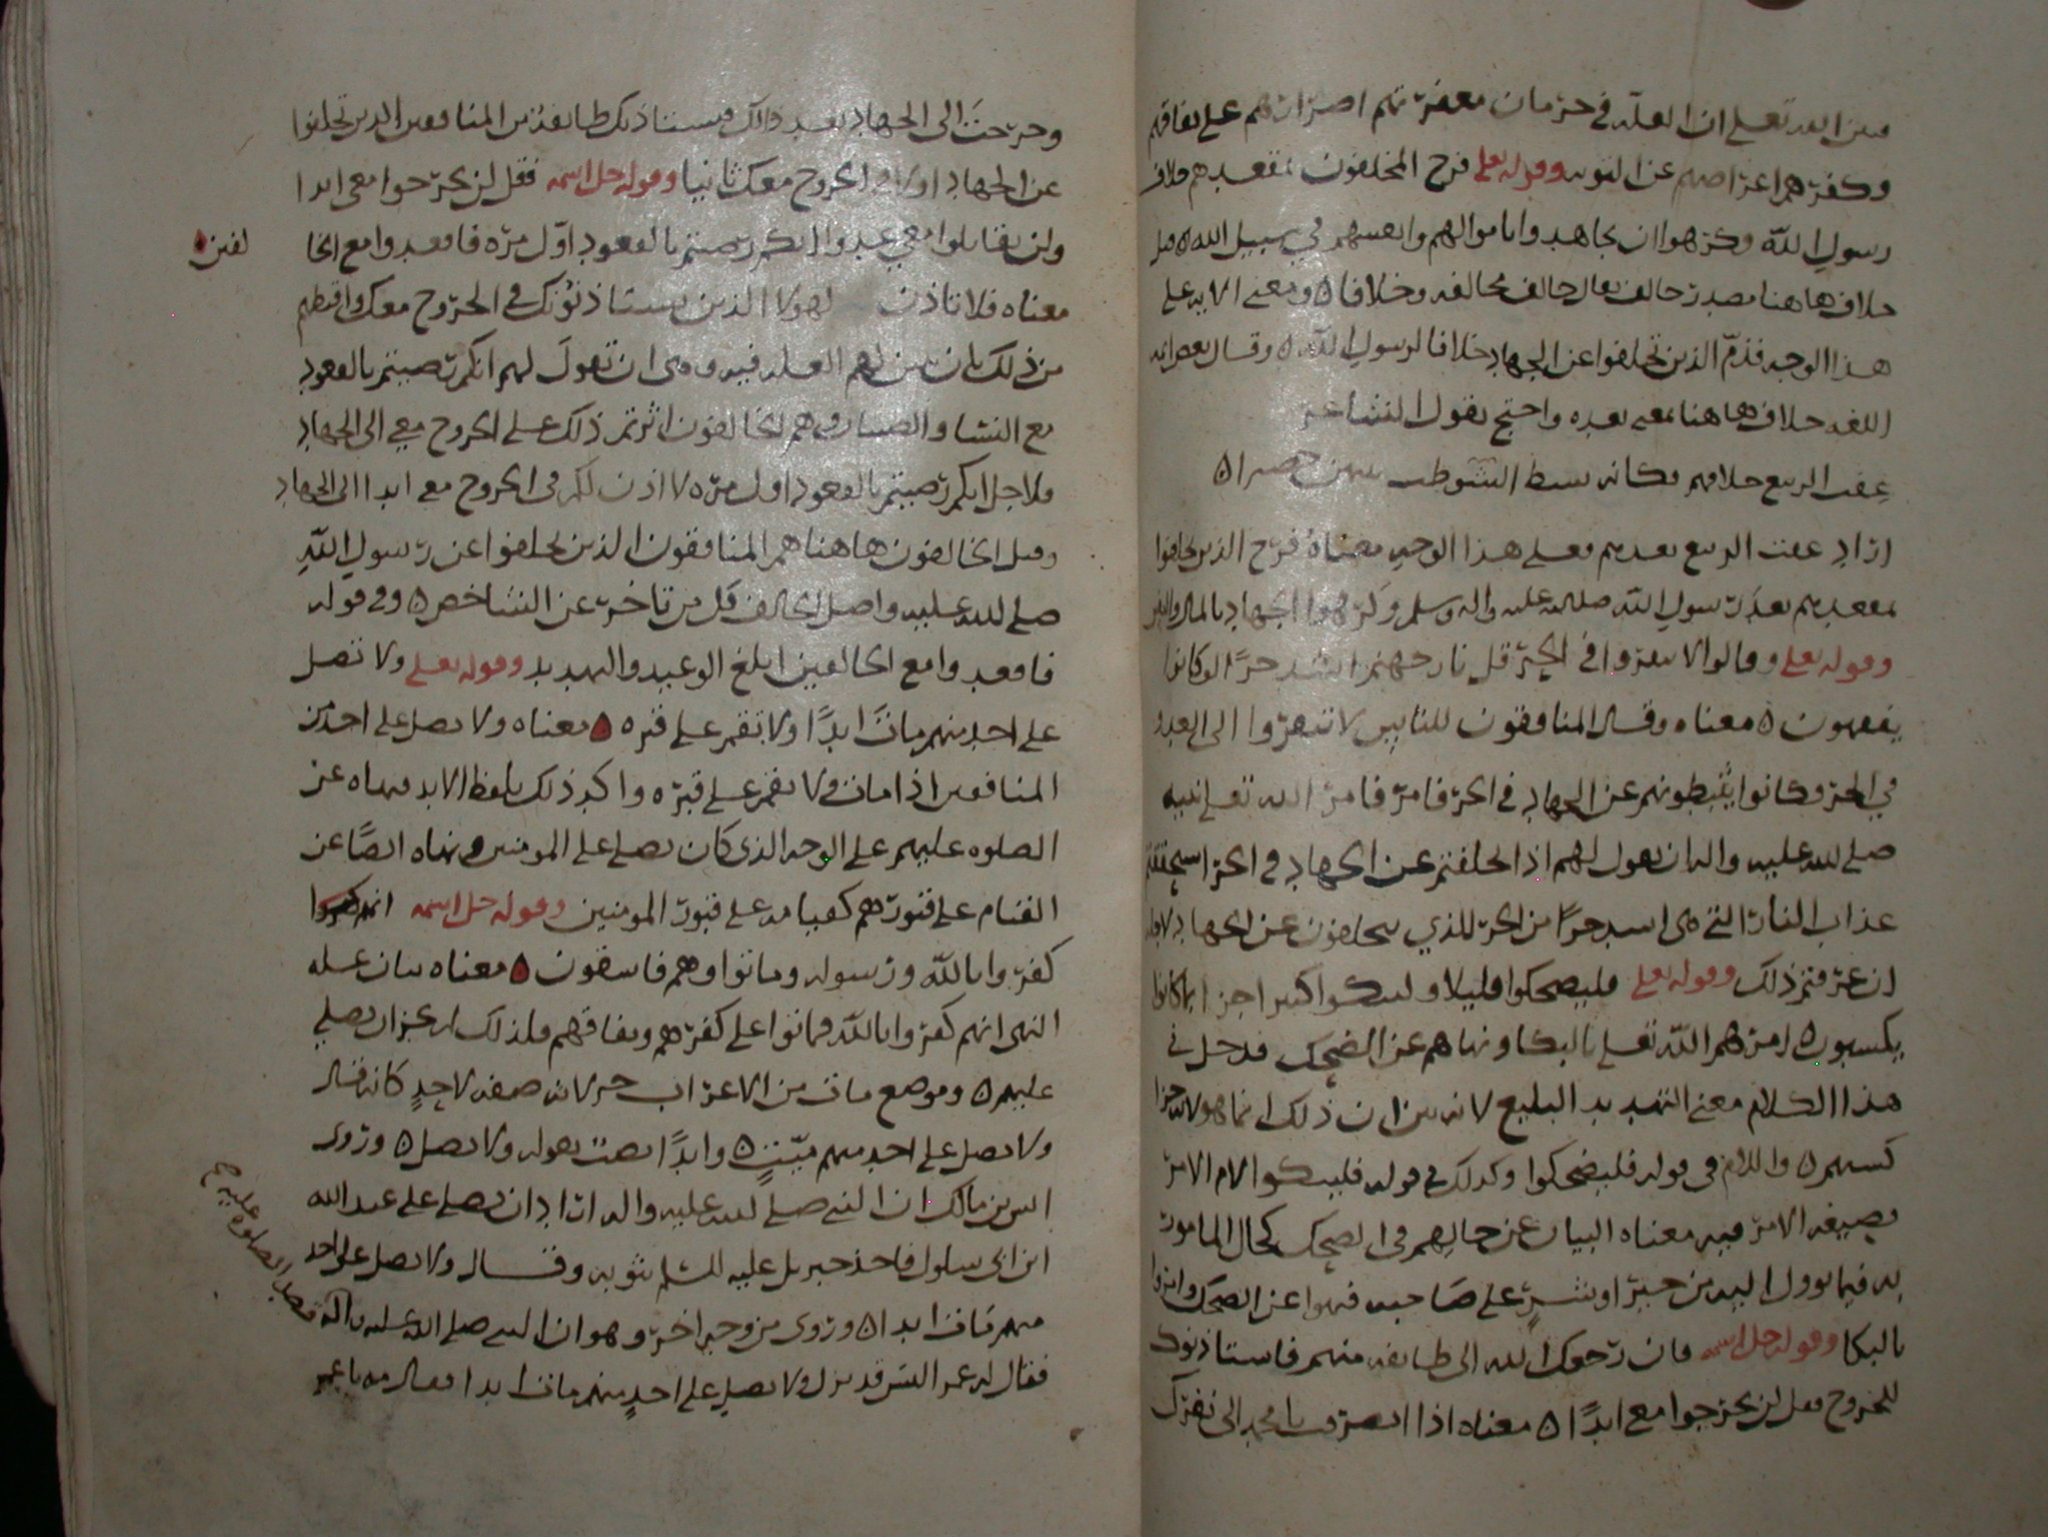 فبين الله تعالى ان العلة في حرمان مغفرتهم اصرارهم على نفاقهم
وكفرهم واعراضهم عن التوبه وقوله تعلى فرح المخلفون بمقعدهم خلاف
رسول الله وكرهوا ان يجاهدوا باموالهم وانفسهم في سبيل الله قيل
خلاف هاهنا مصدر خالف يقال خالف مخالفه وخلافا ومعنى الايه على
هذا الوجه فذمّ الذين تخلفوا عن الجهاد خلافا لرسول الله وقال بعض ايمه
اللغه خلاف هاهنا بمعنى بعده واحتج بقول الشاعر
عقب الربيع خلافهم فكانما بسط الشواطب بينهن حصيرا
اراد عقب الربيع بعدهم فعلى هذا الوجه معناه فرح الذين تخلفوا
بمقعدهم بعد رسول الله صلى الله عليه واله وسلم وكرهوا الجهاد بالمال والنفس
وقوله تعلى وقالوا لا تنفروا في الحرّ قل نار جهنم اشد حرًا لو كانوا
يفقهون معناه وقال المنافقون للناس لا تنفروا الى العدو
في الحر وكانوا يثبطونهم عن الجهاد في الحر فامر الله تعلى نبيه
صلى الله عليه واله ان يقول لهم اذا تخلفتم عن الجهاد في الحر استحققتم
عذاب النار التي هي اشد حرًا من الحر الذي تتخلفون عن الجهاد لاجله
ان عرفتم ذلك وقوله تعلى فليضحكوا قليلا وليبكوا كثيرا جزا بما كانوا
يكسبون امرهم الله تعلى بالبكا ونهاهم عن الضحك فدخل في
هذا الكلام معنى التهديد البليغ لانه بين ان ذلك انما هو لانه جزا
كسبهم واللام في قوله فليضحكوا وكذلك في قوله فليبكوا لام الامر
بصيغه الامر فيه معناه البيان عن حالهم في الضحك كحال المامور
به فيما يوول اليه من خير او شرٍّ على صاحبه فنهوا عن الضحك وامروا
بالبكا وقوله جل اسمه فان رجعك الله الى طايفه منهم فاستاذنوك
للخروج فقل لن تخرجوا معي ابدًا معناه اذا انصرفت يا محمد الى نفرك
وخرجت الى الجهاد بعد ذلك فيستاذنك طايفة من المنافقين الذين تخلفوا
عن الجهاد اولا في الخروج معك ثانيا وقوله جل اسمه فقل لن تخرجوا معي ابدا
ولن تقاتلوا معي عدوا انكم رضيتم بالقعود اوّل مرّه فاقعدوا مع الخا
لفين
معناه فلا تاذن لهولا الذين يستاذنونك في الخروج معك واقطعهم
من ذلك بان تبين لهم العله فيه وهي ان تقول لهم انكم رضيتم بالقعود
مع النشا والصبيان وهم الخالفون اثرتم ذلك على الخروج معي الى الجهاد
ولاجل انكم رضيتم بالقعود اول مرّه لا اذن لكم في الخروج معي ابدا الى الجهاد
وقيل الخالفون هاهنا هم المنافقون الذين تخلفوا عن رسول الله
صلى الله عليه واصل الخالف كل من تاخر عن الشاخص وفي قوله
فاقعدوا مع الخالفين ابلغ الوعيد والتهديد وقوله تعلى ولا تصل
على احد منهم ماتَ ابدًا ولا تقم على قبره معناه ولا تصل على احد من
المنافقين اذا مات ولا تقم على قبره واكد ذلك بلفظ الابد فنهاه عن
الصلوه عليهم على الوجه الذي كان يصلي على المومنين ونهاه ايضًا عن
القيام على قبورهم كقيامه على قبور المومنين وقوله جل اسمه انهم
كفروا بالله ورسوله وماتوا وهم فاسقون معناه بيان عله
النهي انهم كفروا بالله فماتوا على كفرهم ونفاقهم فلذلك لم يجز ان يصلي
عليهم وموضع مات من الاعراب جر لانه صفه لاحدٍ كانه قال
ولا تصل على احد منهم ميّتٍ وابدًا نصبٌ بقوله ولا تصل وروى
انس بن مالك ان النبي صلى الله عليه واله اراد ان يصلي على عبد الله
ابن ابى سلول فاخذ جبريل عليه السلم بثوبه وقال ولا تصل على احد
منهم مات ابدا وروى من وجه اخر وهو ان النبي صلى الله عليه واله
قصد الصلوه عليه
فقال له عمر اليس قد نزل ولا تصل على احدٍ منهم مات ابدا فقال مه يا عمر